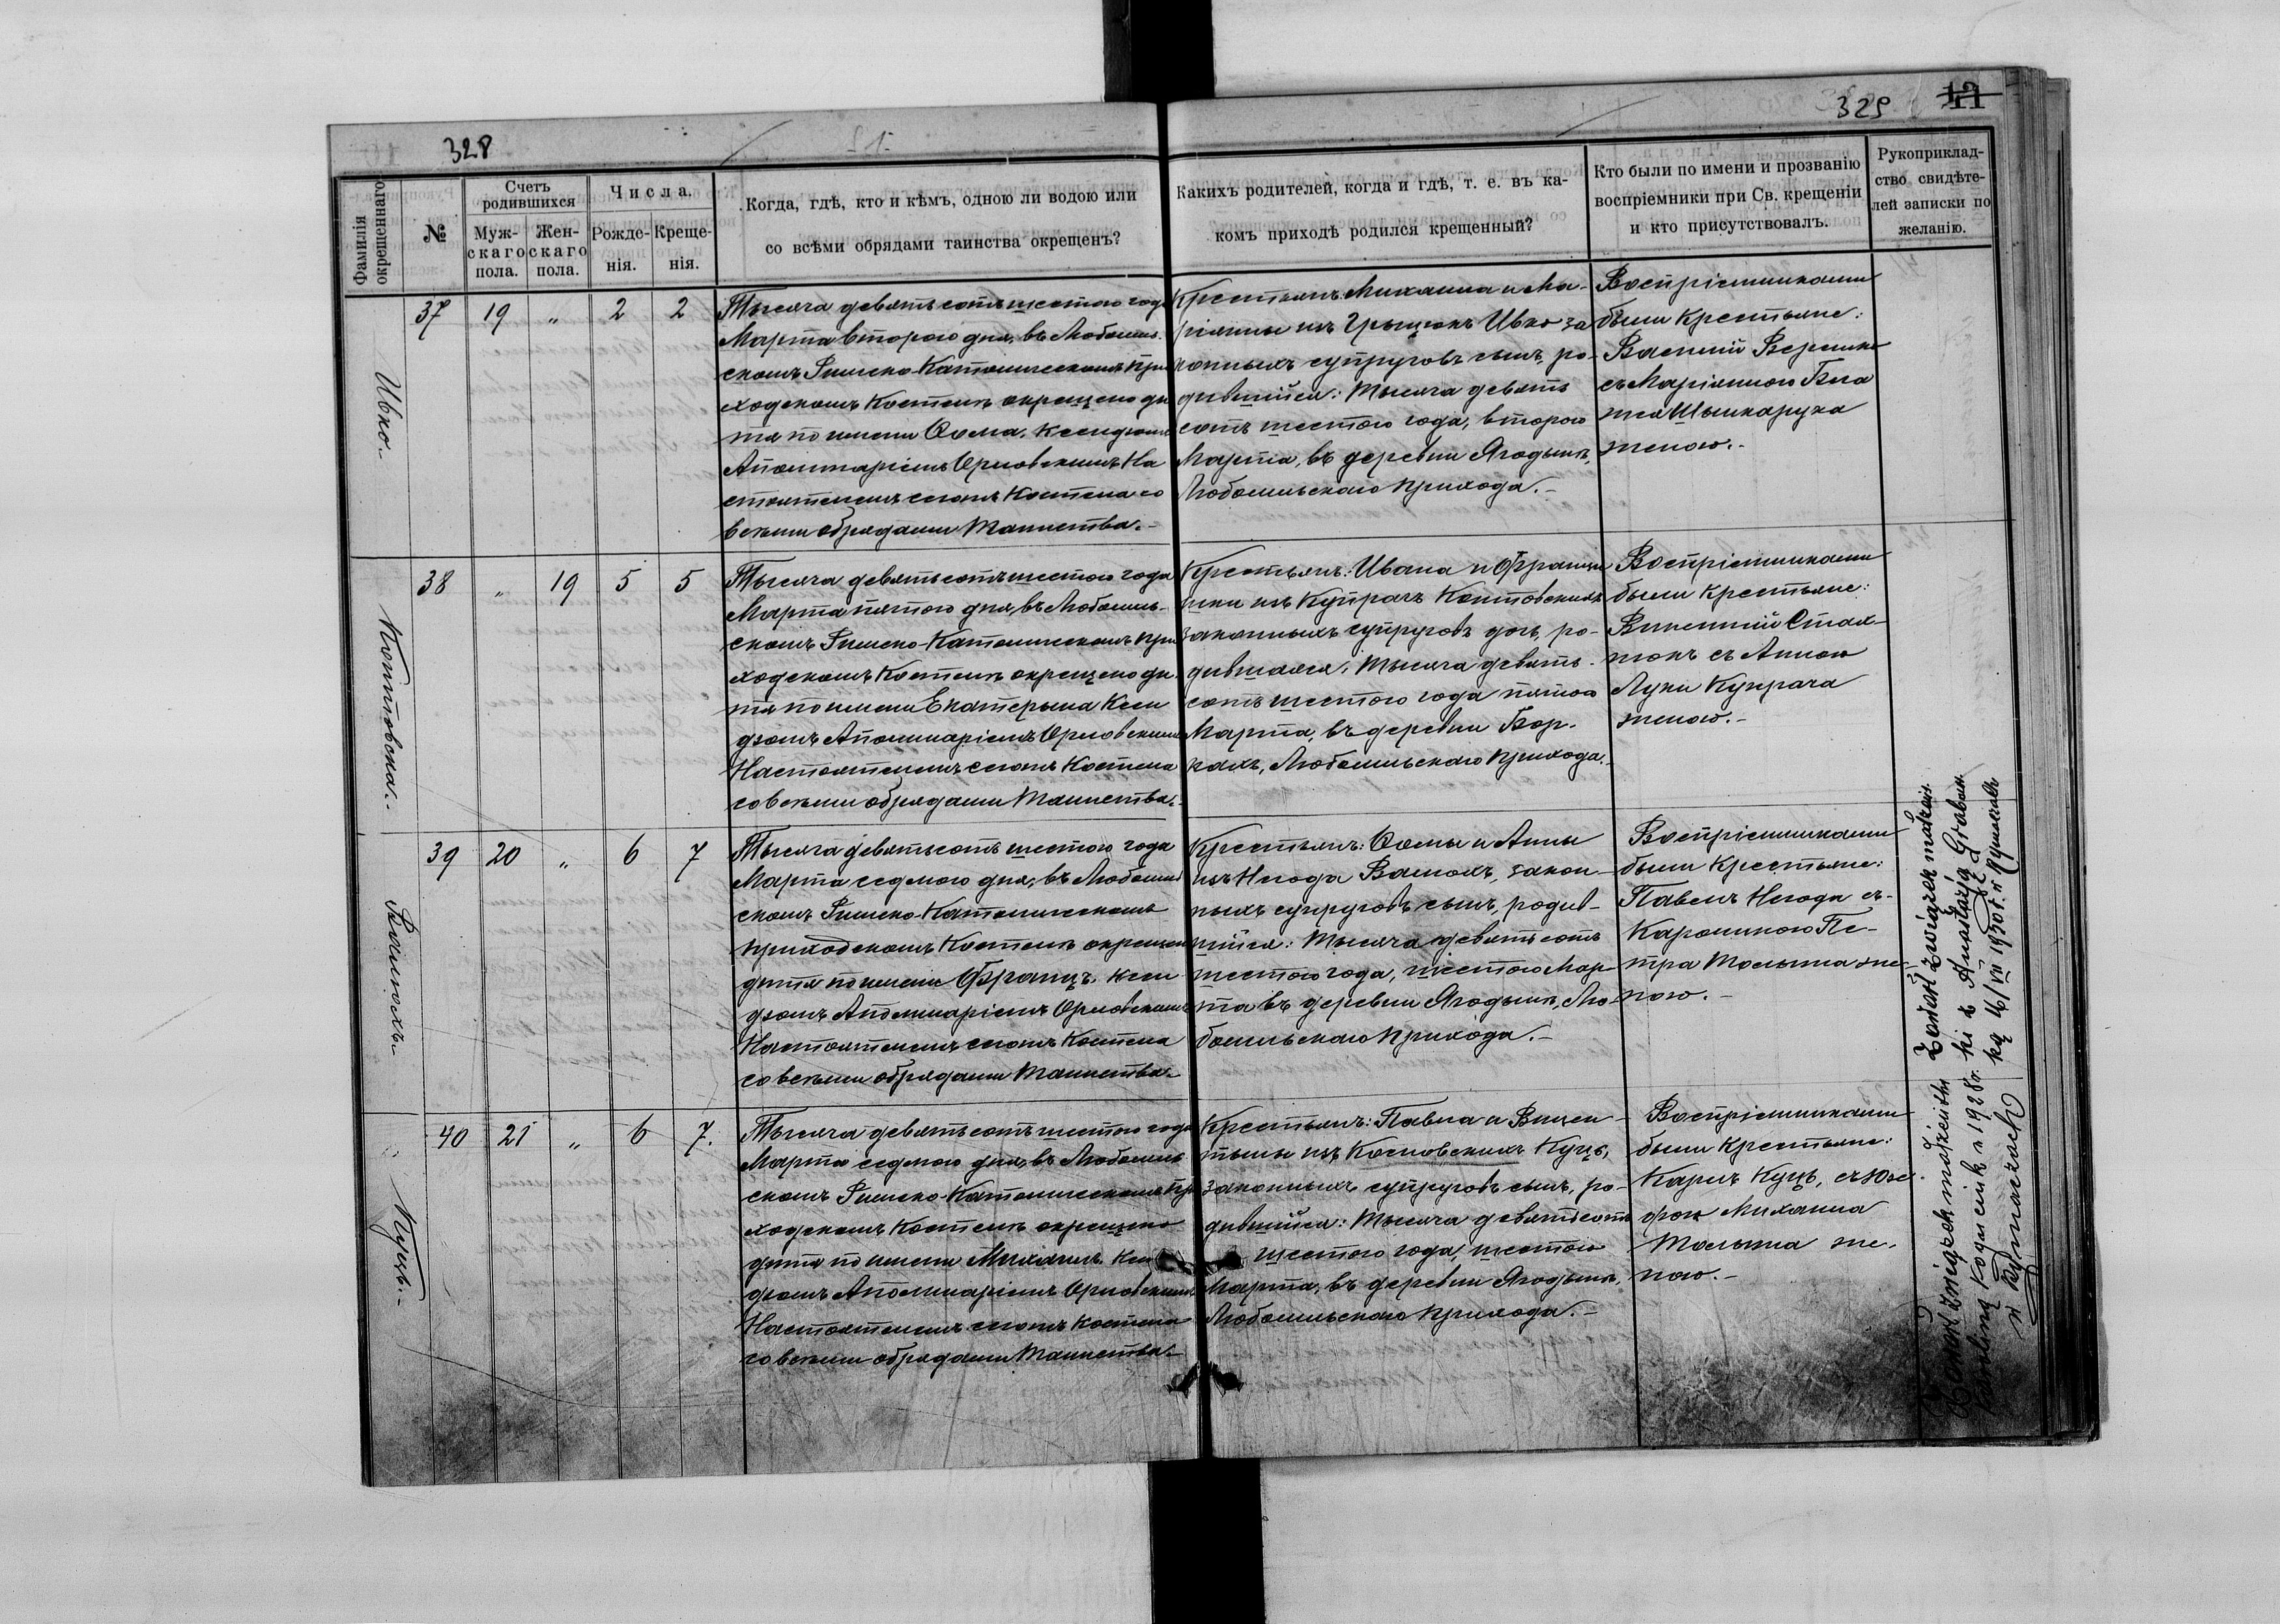 328
Фамилія
окрещеннаго
№
Счетъ
родившихся
Муж-
скаго
пола.
Жен-
скаго
пола.
Числа.
Рожде-
нія.
Креще-
нія.
Когда, гдѣ, кто и кѣмъ, одною ли водою или
со всѣми обрядами таинства окрещенъ?
325
Какихъ родителей, когда и гдѣ, т. е. въ ка-
комъ приходѣ родился крещенный?
Кто были по имени и прозванію
воспріемники при Св. крещеніи
и кто присутствовалъ.
Рукоприклад-
ство свидѣте-
лей записки по
желанію.
Ивко.
37 19 „ 2 2
Тысяча девятьсотъ шестого года
Марта второго дня, въ Любомль-
скомъ Римско-Католическомъ При
ходскомъ Костелѣ окрещено ди
тя по имени Ѳома. Ксендзомъ
Аполинаріемъ Орловскимъ На
стоятелемъ сегожъ Костела со
всѣми обрядами Таинства.-
Крестьянъ: Михаила и Ма-
ріянны изъ Грыцюкъ Ивко за
конныхъ супруговъ сынъ, ро-
дившійся: Тысяча девять
сотъ шестого года, второго
Марта, въ деревни Ягодынѣ,
Любомльскаго прихода.-
Воспріемниками
были крестьяне:
Василій
съ Маріянною
женою.-
38 „ 19 5 5
Тысяча девятьсотъ шестого года
Марта пятого дня, въ Любомль-
скомъ Римско-Католическомъ при
ходскомъ Костелѣ окрещено ди
тя по имени Екатерына Ксен
дзомъ Аполинаріемъ Орловскимъ
Настоятелемъ сегожъ Костела
со всѣми обрядами Таинства.-
Крестьянъ: Ивана и Францы
шки изъ Купрачъ
законныхъ супруговъ дочь, ро-
дившаяся: Тысяча девять-
сотъ шестого года пятого
Марта, въ деревни Бор-
кахъ, Любомльскаго прихода.
Воспріемниками
были крестьяне:
Викентій
съ Анною
Луки Купрача
женою.-
39 20 „ 6 7
Тысяча девятьсотъ шестого года
Марта седмого дня, въ Любомль
скомъ Римско-Католическомъ
приходскомъ Костелѣ окрещено
дитя по имени Францъ. Ксен
дзомъ Аполинаріемъ Орловскимъ
Настоятелемъ сегожъ Костела
со всѣми обрядами Таинства.-
Крестьянъ: Ѳомы и Анны
изъ Негода закон-
ныхъ супруговъ сынъ, родив-
шійся: Тысяча девятьсотъ
шестого года, шестого Мар-
та въ деревни Ягодынѣ, Лю-
бомльскаго прихода.-
Воспріемниками
были крестьяне:
Павелъ Негода съ-
Каролиною Пе-
тра же-
ною.-
Куцъ.-
40 21 „ 6 7.
Тысяча девятьсотъ шестого года
Марта седмого дня, въ Любомль
скомъ Римско-Католическомъ При
ходскомъ Костелѣ окрещено
дитя по имени Михаилъ. Ксен
дзомъ Аполинаріемъ Орловскимъ
Настоятелемъ сегожъ Костела
со всѣми обрядами Таинства.-
Крестьянъ: Павла и Викен-
тыны изъ Косновскихъ Куцъ,
законныхъ супруговъ сынъ, ро-
дившійся: Тысяча девятьсотъ
шестого года, шестого
Марта, въ деревни Ягодынѣ,
Любомльскаго прихода.-
Воспріемниками
были крестьяне:
Карлъ Куцъ, съ Юзе-
фою Михаила
же-
ною.-
Zawarł związek małżeński
w 1928 r.
w Rymaczach
Zawarł związek małżeńs
ki z Anastazją Grabow
ką 16/VII 1930 r. w Rymaczach